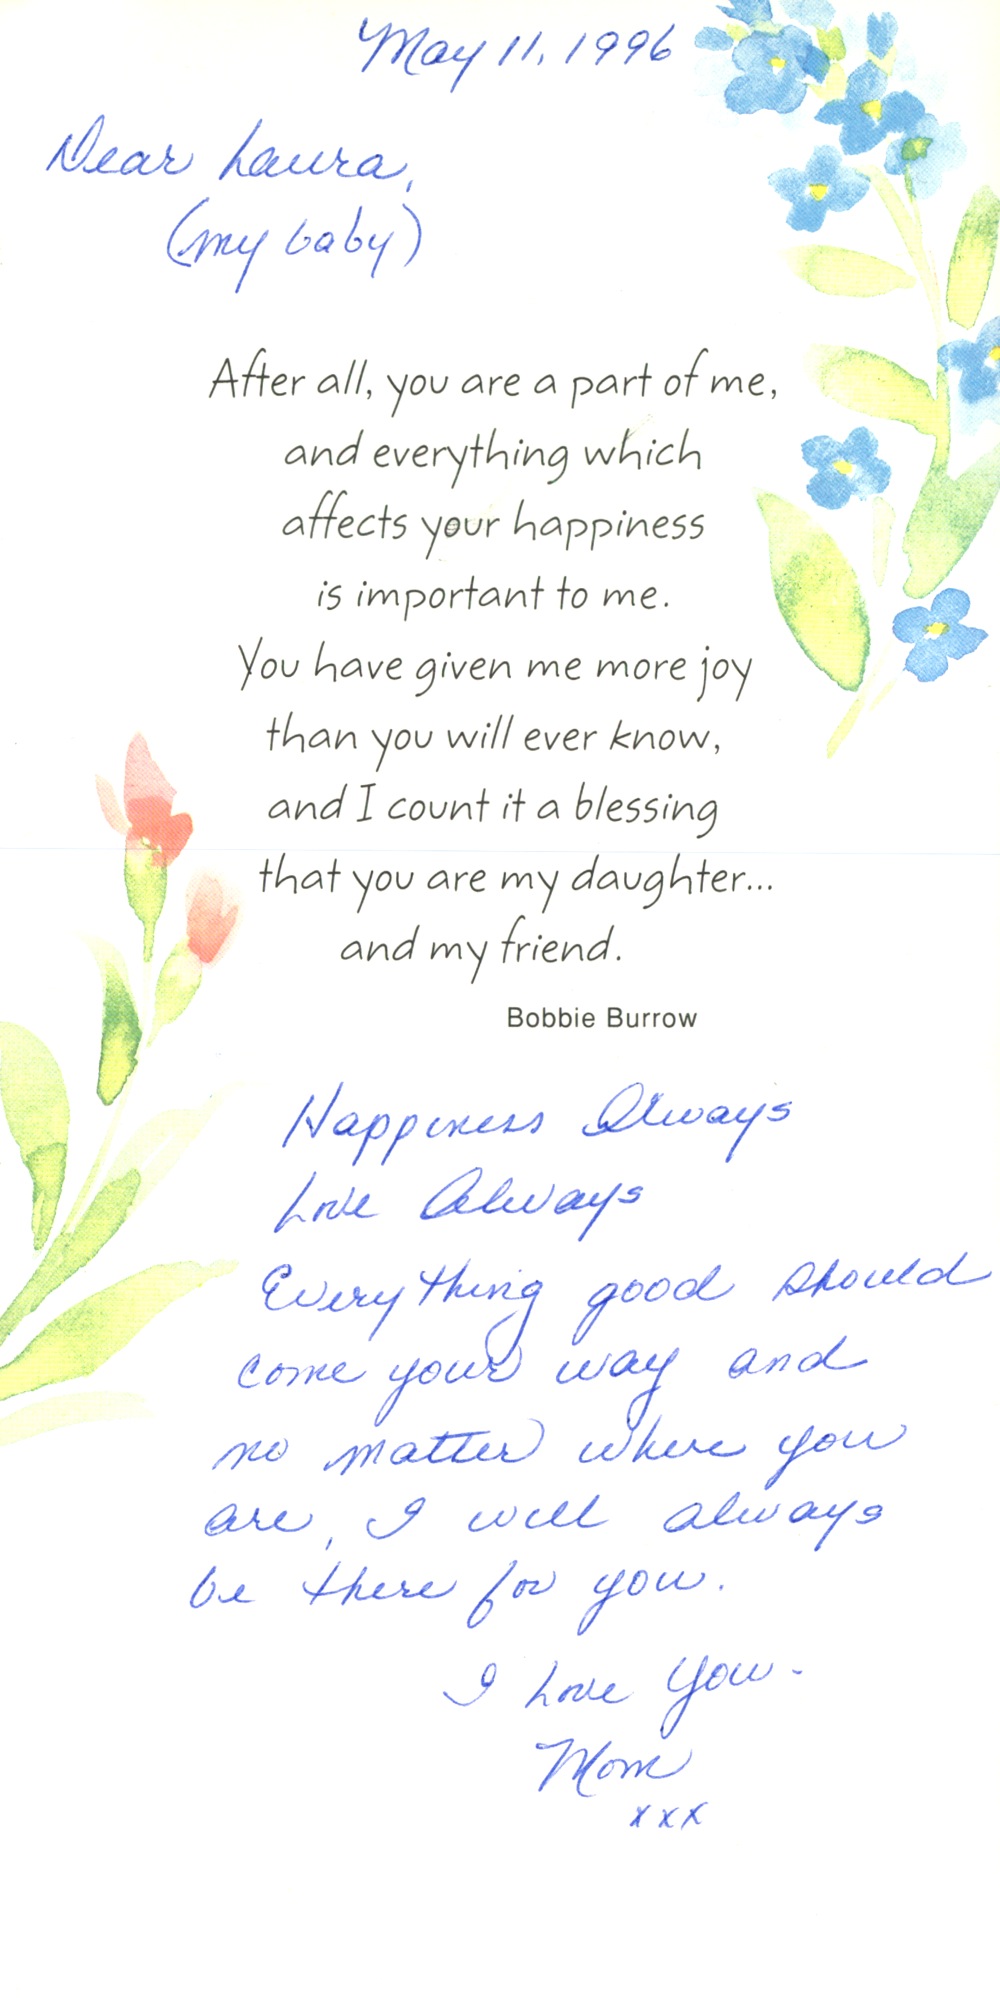 May 11, 1996
Dear Laura,
(my baby)
After all, you are a part of me,
and everything which
affects your happiness
is important to me.
You have given me more joy
than you will ever know,
and I count it a blessing
that you are my daughter...
and my friend.
Bobbie Burrow
Happiness Always
Love Always
Everything good should
come your way and
no matter where you
are, I will always
be there for you.
I Love You.
Mom
xxx